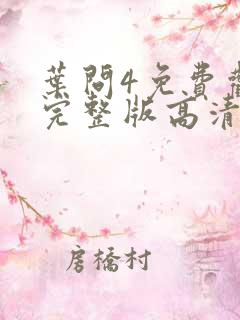 葉問4免費
完整版高清
房橋村